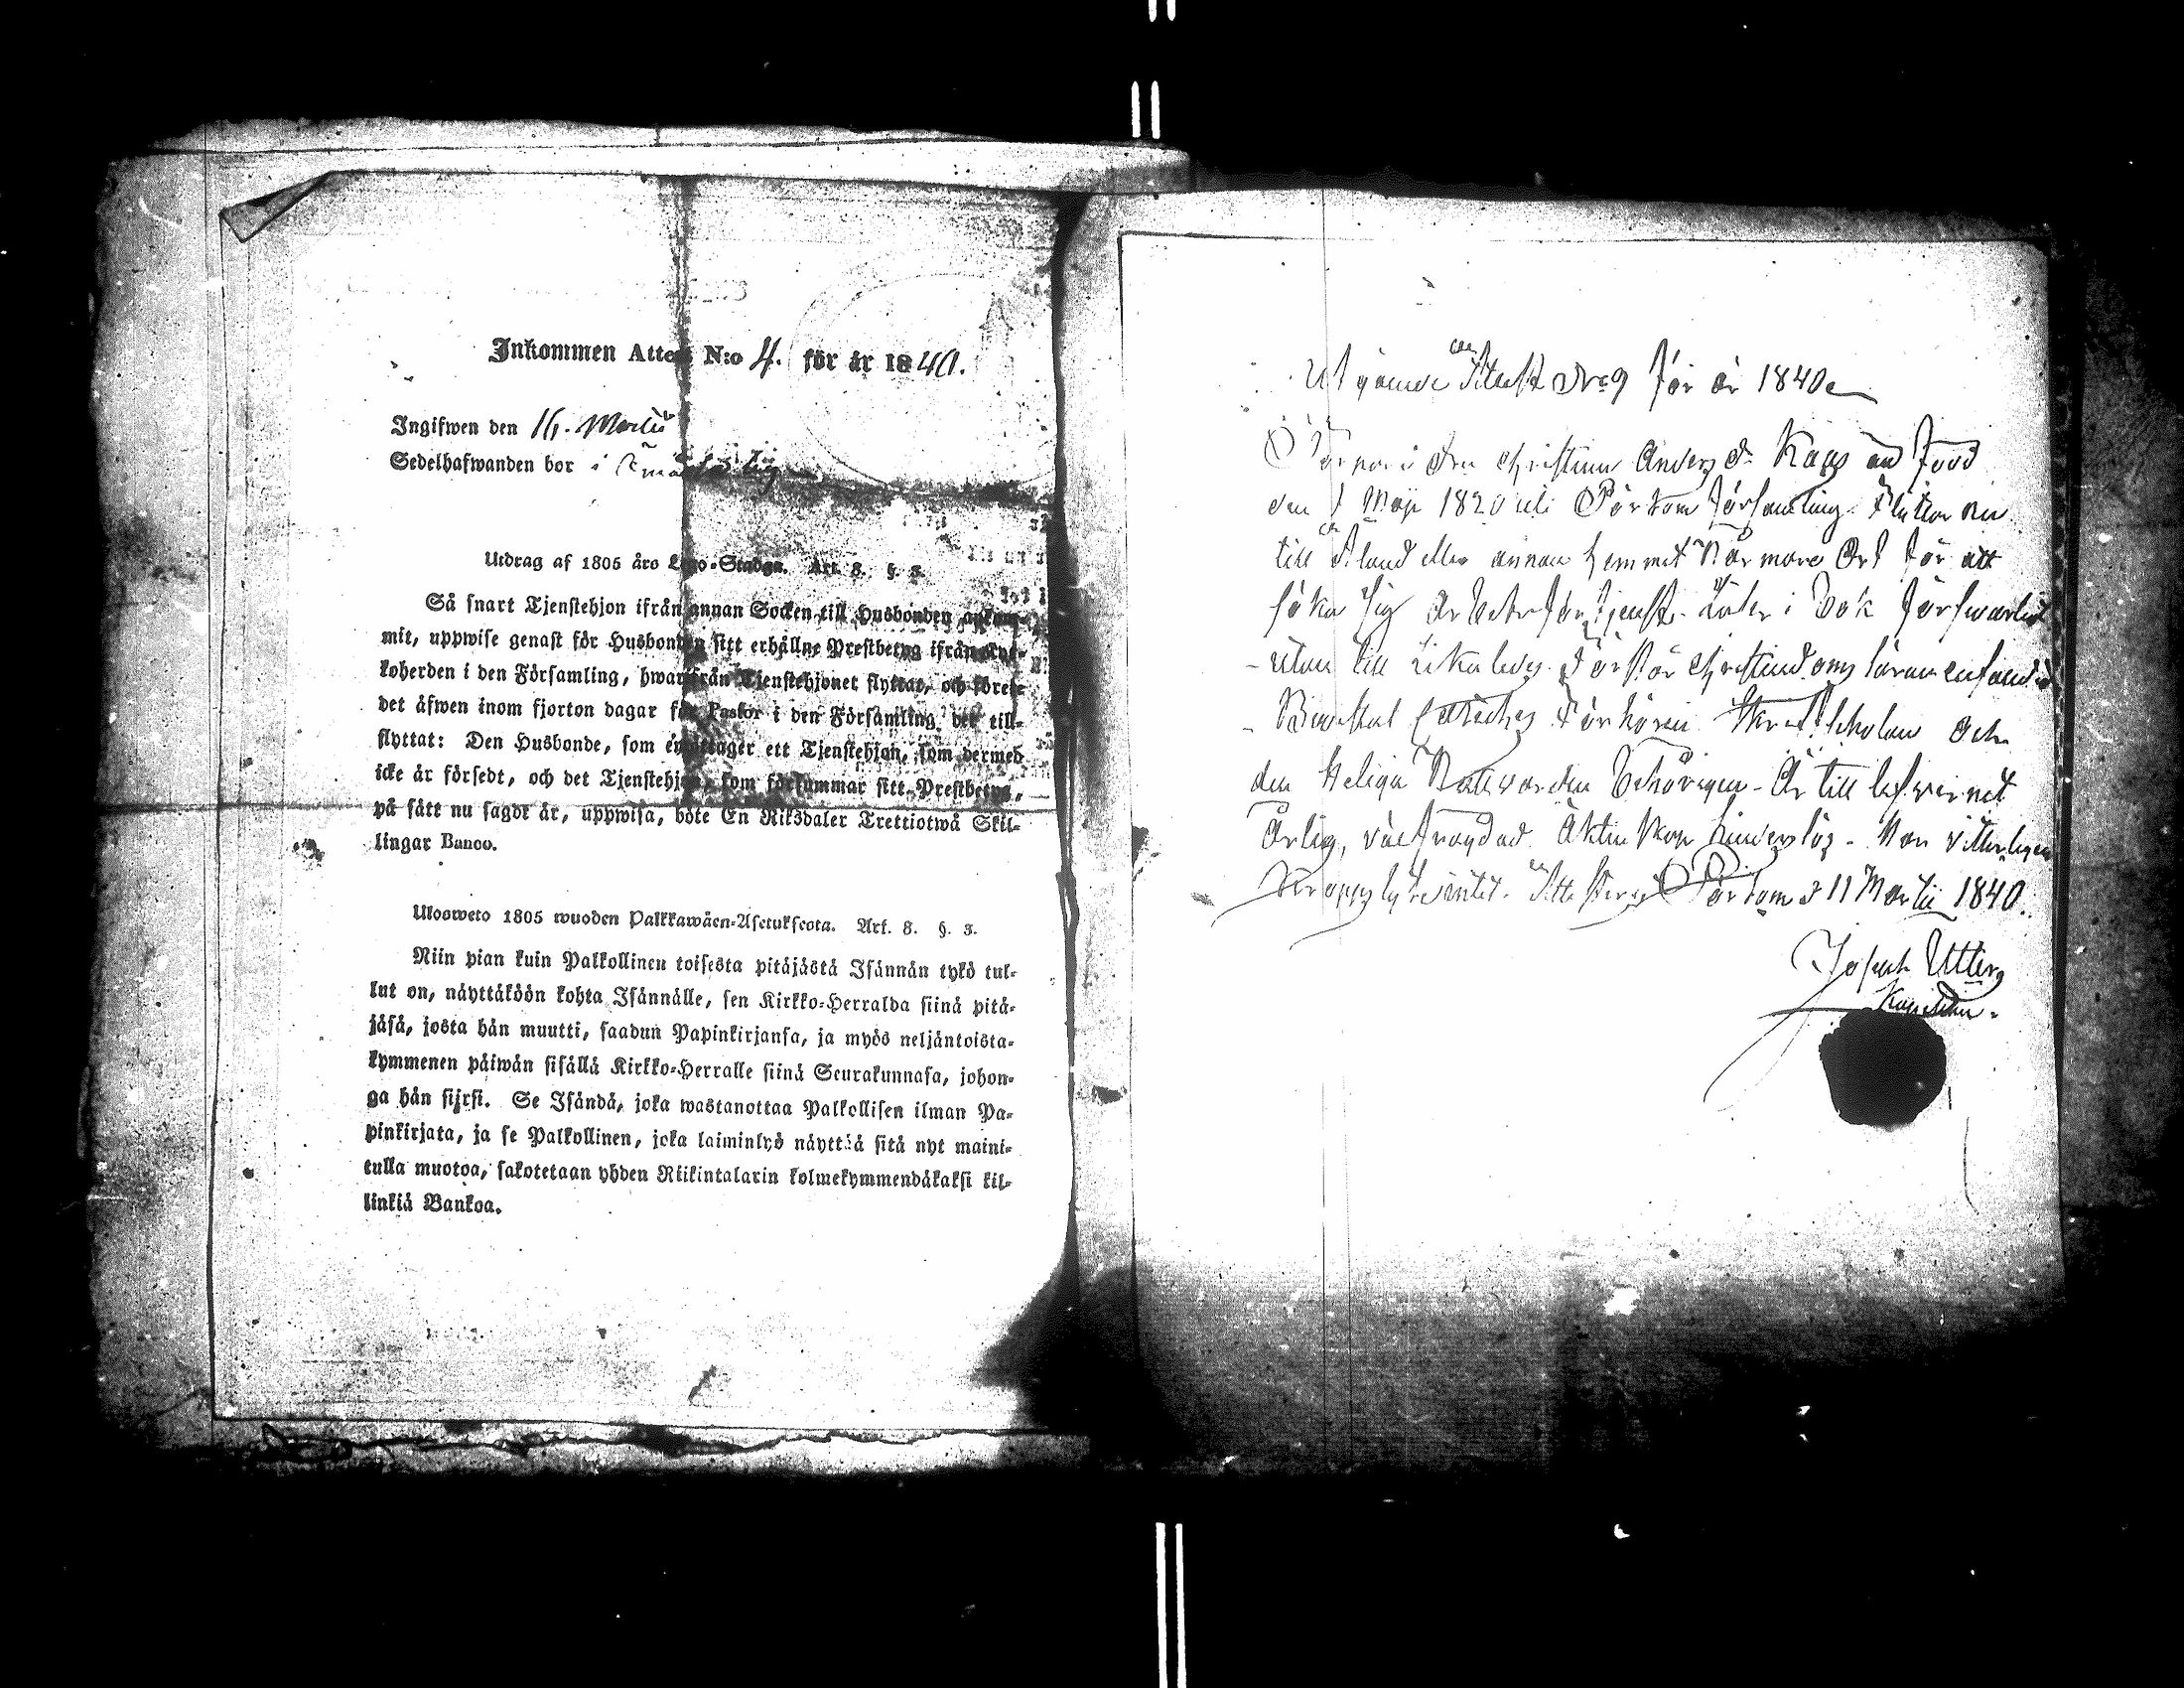 Inkommen Attest N:o 4. för år 1840.
Ingifwen den 16. Martii
Sedelhafwanden bor i
Utdrag af 1805 års Lego-Stadga. Art. 8. §. 3.
Så snart Tjenstehjon ifrån annan Socken till Husbonden ankom-
mit, uppwise genast för Husbonden sitt erhållne Prestbetyg ifrån Kyr-
koherden i den Församling, hwarifrån Tjenstehjonet flyttat, och förete
det äfwen inom fjorton dagar för Pastor i den Församling det till-
flyttat: Den Husbonde, som emottager ett Tjenstehjon, som dermed
icke är försedt, och det Tjenstehjon, som försummar sitt Prestbetyg,
på sätt nu sagdt är, uppwisa, böte En Riksdaler Trettiotwå Skil-
lingar Banco.
Ulosweto 1805 wuoden Palkkawäen-Asetuksesta. Art. 8. §. 3.
Niin pian kuin Palkollinen toisesta pitäjästä Isännän tykö tul-
lut on, näyttäköön kohta Isännälle, sen Kirkko-Herralda siinä pitä-
jäsä, josta hän muutti, saadun Papinkirjansa, ja myös neljäntoista-
kymmenen päiwän sisällä Kirkko-Herralle siinä Seurakunnasa, johon-
ga hän siirsi. Se Isändä, joka wastanottaa Palkollisen ilman Pa-
pinkirjata, ja se Palkollinen, joka laiminlyö näyttää sitä nyt maini-
tulla muotoa, sakotetaan yhden Riikintalarin kolmekymmendäkaksi kil-
linkiä Bankoa.
Utgående Attest Nro 9 för år 1840
Christina Anders dr född
den Maji 1820 uti församling. Flyttar nu
till Åland eller annan hemmet närmare Ort för att
söka sig arbetsförtjenst. Läser i bok försvarligt
utan till lika ledes. Förstår Christendoms läran
Bevistat Cateches Förhören Skrift Scholan och
den Heliga Nattvarden behörigen. Är till lefvernet
Ärlig, väl fragdad Äktenskaps hinderslös. Har vitterligen
kropps lyte intet. Attesterar d 11 Martii 1840.
Joseph
Kapellan.